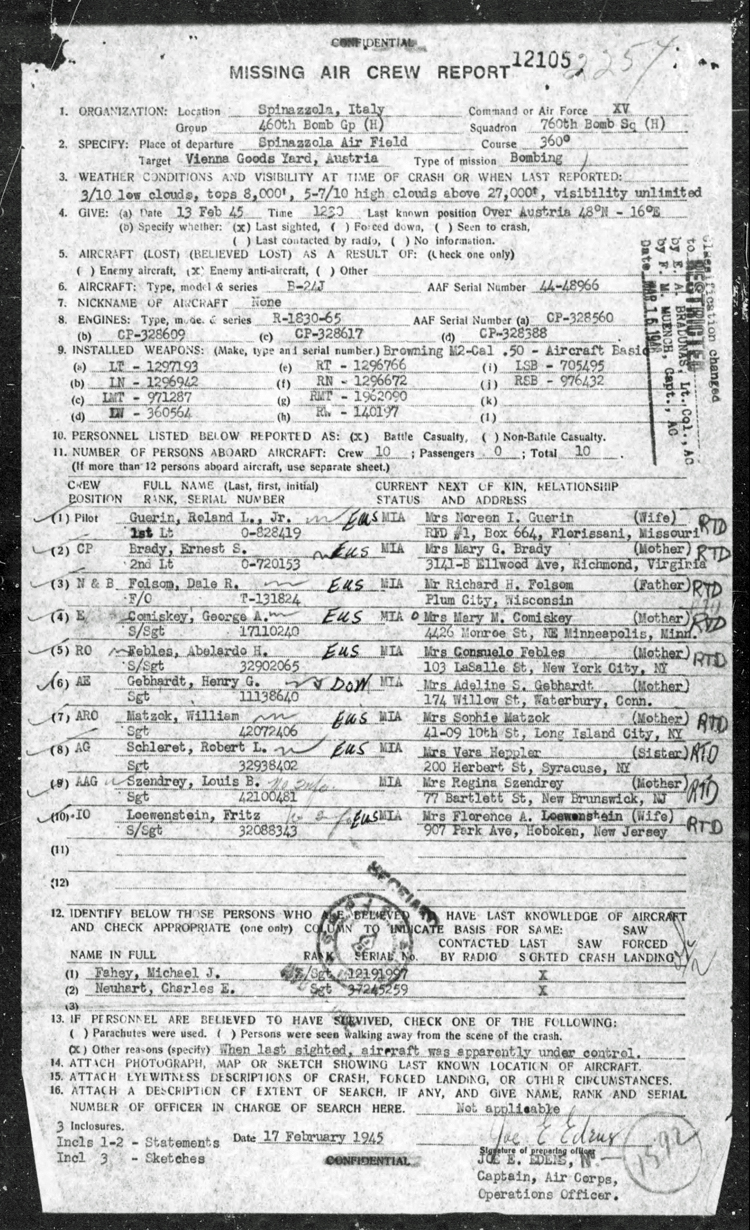 CONFIDENTIAL
MISSING AIR CREW REPORT 12105 2257
1. ORGANIZATION: Location Spinazzola, Italy Command or Air Force XV
Group 460th Bomb Gp (H) Squadron 760th Bomb Sq (H)
2. SPECIFY: Place of departure Spinazzola Air Field Course 360°
Target Vienna Goods Yard, Austria Type of mission Bombing
3. WEATHER CONDITIONS AND VISIBILITY AT TIME OF CRASH OR WHEN LAST REPORTED:
3/10 low clouds, tops 8,000', 5-7/10 high clouds above 27,000', visibility unlimited
4. GIVE: (a) Date 13 Feb 45 Time 1230 Last known position Over Austria 48°N - 16°E
(b) Specify whether: (x) Last sighted, ( ) Forced down, ( ) Seen to crash,
( ) Last contacted by radio, ( ) No information.
5. AIRCRAFT (LOST) (BELIEVED LOST) AS A RESULT OF: (Check one only)
( ) Enemy aircraft, (X) Enemy anti-aircraft, ( ) Other
6. AIRCRAFT: Type, model & series B-24J AAF Serial Number 44-48966
7. NICKNAME OF AIRCRAFT None
8. ENGINES: Type, model & series R-1830-65 AAF Serial Number (a) CP-328560
(b) CP-328609 (c) CP-328617 (d) CP-328388
9. INSTALLED WEAPONS: (Make, type and serial number.) Browning M2-Cal .50 - Aircraft Basic
(a) LT - 1297193 (e) RT - 1296766 (i) LSB - 705495
(b) LN - 1296942 (f) RN - 1296672 (j) RSB - 976432
(c) LMT - 971287 (g) RMT - 1962090 (k)
(d) LW - 360564 (h) RW - 140197 (l)
10. PERSONNEL LISTED BELOW REPORTED AS: (X) Battle Casualty, ( ) Non-Battle Casualty.
11. NUMBER OF PERSONS ABOARD AIRCRAFT: Crew 10 ; Passengers 0 ; Total 10 .
(If more than 12 persons aboard aircraft, use separate sheet.)
CREW FULL NAME (Last, first, initial) CURRENT NEXT OF KIN, RELATIONSHIP
POSITION RANK, SERIAL NUMBER STATUS AND ADDRESS
(1) Pilot Guerin, Roland L., Jr. EUS MIA Mrs Noreen I. Guerin (Wife) RTD
1st Lt O-828419 RFD #1, Box 664, Florissani, Missouri
(2) CP Brady, Ernest S. EUS MIA Mrs Mary G. Brady (Mother) RTD
2nd Lt O-720153 3141-B Ellwood Ave, Richmond, Virginia
(3) N & B Folsom, Dale R. EUS MIA Mr Richard H. Folsom (Father) RTD
F/O T-131824 Plum City, Wisconsin
(4) E Comiskey, George A. EUS MIA Mrs Mary M. Comiskey (Mother) RTD
S/Sgt 17110240 4426 Monroe St, NE Minneapolis, Minn.
(5) RO Febles, Abelardo H. EUS MIA Mrs Consuelo Febles (Mother) RTD
S/Sgt 32902065 103 LaSalle St, New York City, NY
(6) AE Gebhardt, Henry G. DOW MIA Mrs Adeline S. Gebhardt (Mother)
Sgt 11138640 174 Willow St, Waterbury, Conn.
(7) ARO Matzok, William EUS MIA Mrs Sophie Matzok (Mother) RTD
Sgt 42072406 41-09 10th St, Long Island City, NY
(8) AG Schleret, Robert L. EUS MIA Mrs Vera Heppler (Sister) RTD
Sgt 32938402 200 Herbert St, Syracuse, NY
(9) AAG Szendrey, Louis B. No info MIA Mrs Regina Szendrey (Mother) RTD
Sgt 42100481 77 Bartlett St, New Brunswick, NJ
(10) IO Loewenstein, Fritz EUS MIA Mrs Florence A. Loewenstein (Wife) RTD
S/Sgt 32088343 907 Park Ave, Hoboken, New Jersey
(11)
(12)
12. IDENTIFY BELOW THOSE PERSONS WHO ARE BELIEVED TO HAVE LAST KNOWLEDGE OF AIRCRAFT
AND CHECK APPROPRIATE (one only) COLUMN TO INDICATE BASIS FOR SAME: SAW
CONTACTED LAST SAW FORCED
NAME IN FULL RANK SERIAL No. BY RADIO SIGHTED CRASH LANDING
(1) Fahey, Michael J. T/Sgt 12191997 X
(2) Neuhart, Charles E. Sgt 37245259 X
(3)
13. IF PERSONNEL ARE BELIEVED TO HAVE SURVIVED, CHECK ONE OF THE FOLLOWING:
( ) Parachutes were used. ( ) Persons were seen walking away from the scene of the crash.
(X) Other reasons (specify) When last sighted, aircraft was apparently under control.
14. ATTACH PHOTOGRAPH, MAP OR SKETCH SHOWING LAST KNOWN LOCATION OF AIRCRAFT.
15. ATTACH EYEWITNESS DESCRIPTIONS OF CRASH, FORCED LANDING, OR OTHER CIRCUMSTANCES.
16. ATTACH A DESCRIPTION OF EXTENT OF SEARCH, IF ANY, AND GIVE NAME, RANK AND SERIAL
NUMBER OF OFFICER IN CHARGE OF SEARCH HERE. Not applicable
3 Inclosures.
Incls 1-2 - Statements Date 17 February 1945 Joe E Edens
Signature of preparing officer
Incl 3 - Sketches CONFIDENTIAL JOE E. EDENS,
Captain, Air Corps,
Operations Officer.
1592
Classification changed
to RESTRICTED
by E. A. BRADUNAS, Lt. Col., AC
by F. M. MUENCH, Capt., AC
Date MAR 16 1946